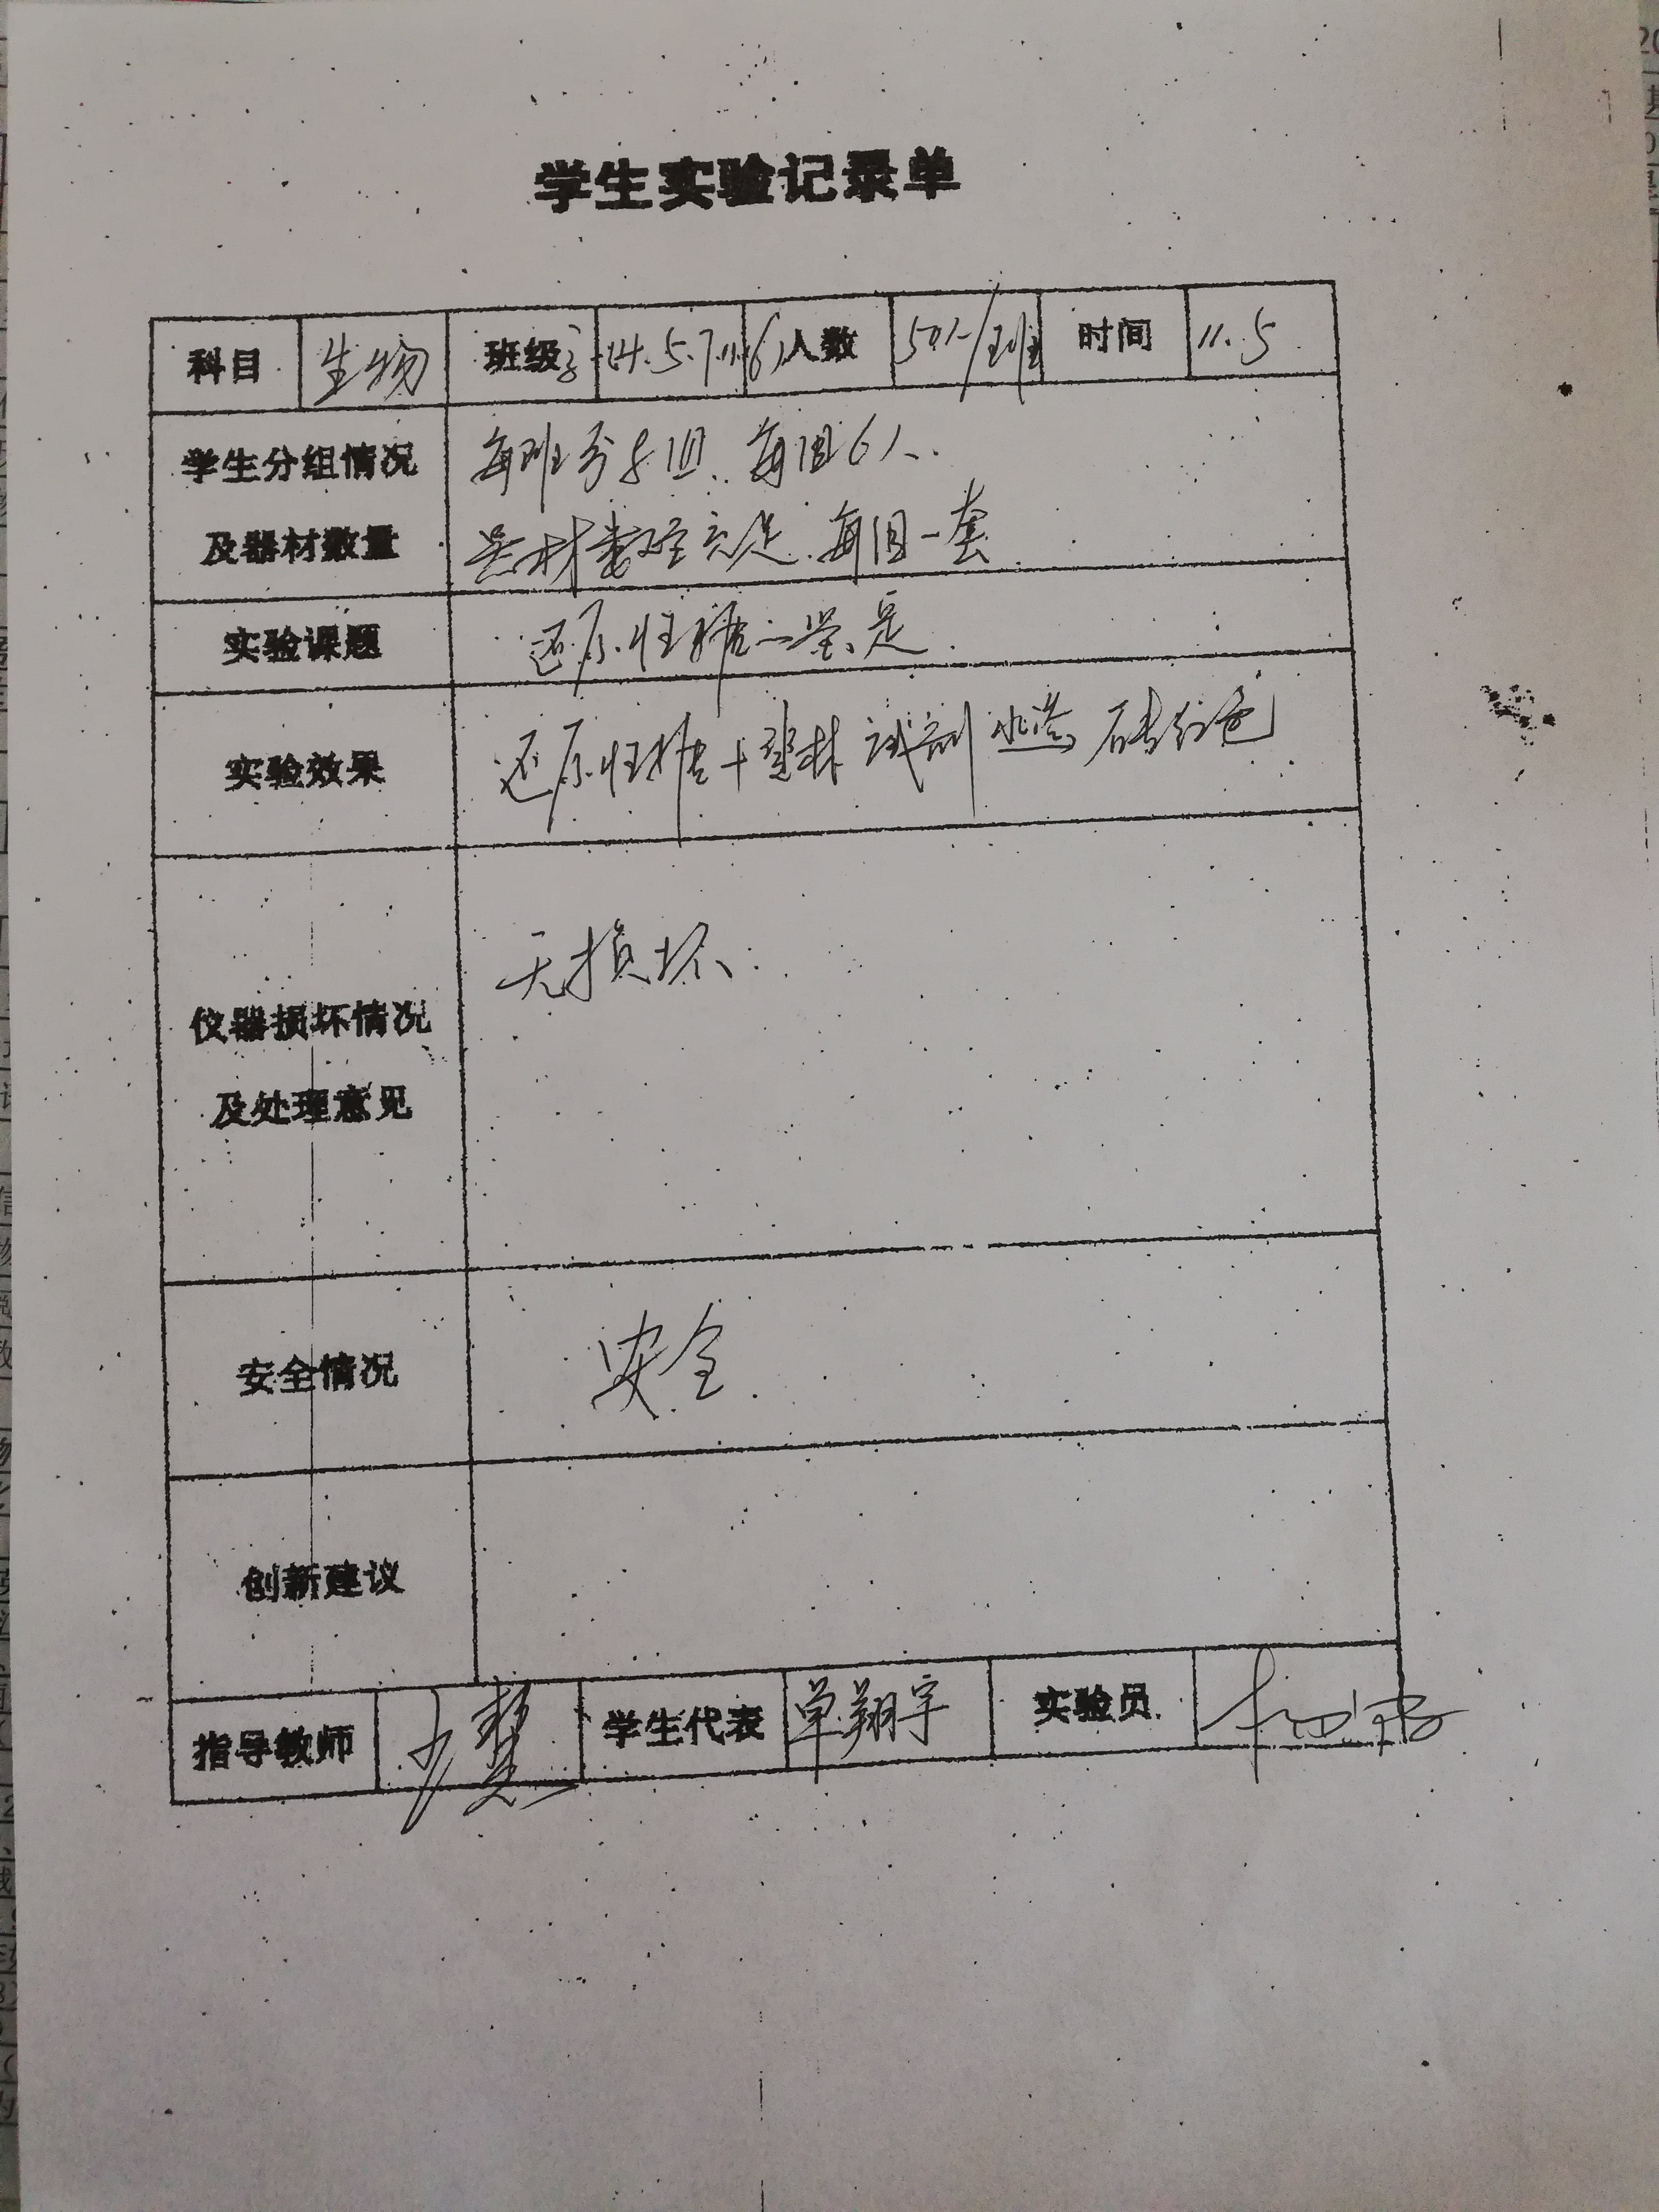 学生实验记录单
科目 生物 班级 高一(4.5.7.11.16) 人数 50人/班 时间 11.5
学生分组情况及器材数量 每班分8组、每组6人.
器材数量充足.每组一套
实验课题 还原性糖的鉴定.
实验效果 还原性糖+斐林试剂 水浴 砖红色
仪器损坏情况及处理意见 无损坏.
安全情况 安全.
创新建议
指导教师 学生代表 单翔宇 实验员